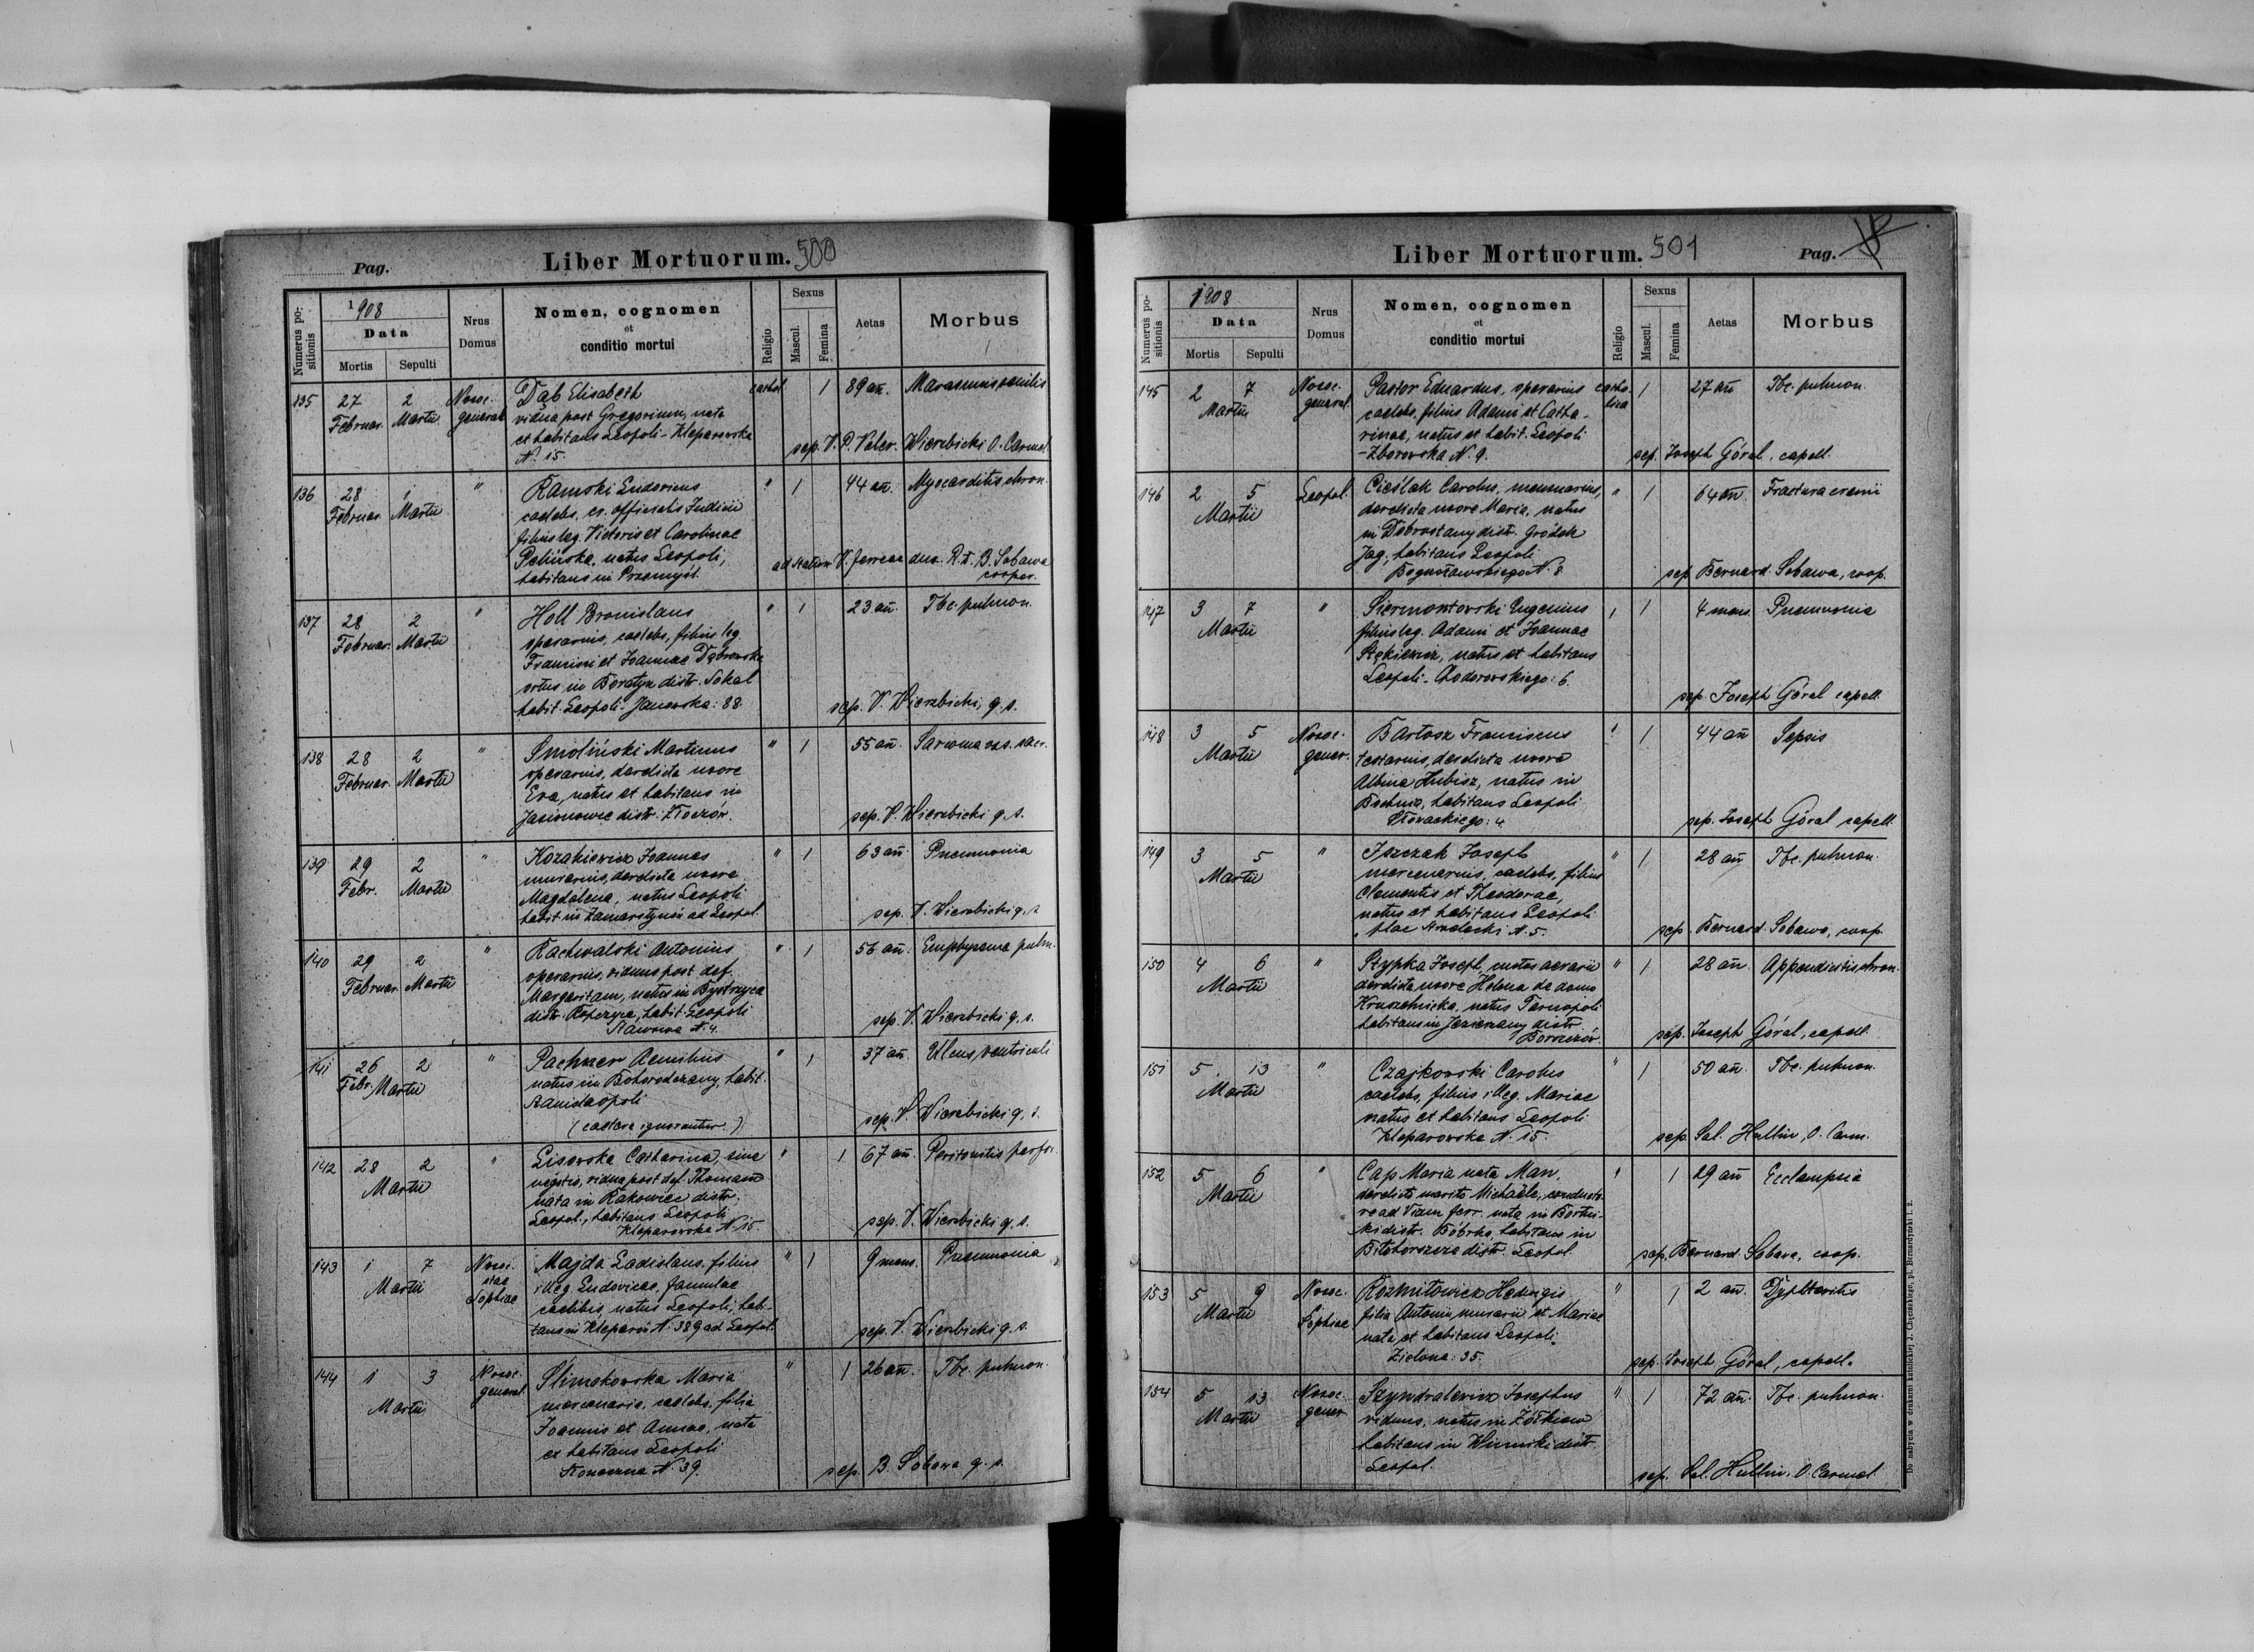 Pag.
Liber Mortuorum. 500
Numerus positionis
1908
Data
Mortis
Sepulti
Nrus Domus
Nomen, cognomen
et
conditio mortui
Religio
Sexus
Mascul.
Femina
Aetas
Morbus
135 27 2 Nosoc. Dąb Elisabeth cathol. 1 89 añ. Marasmus senilis
Februar. Martii general. vidua post Gregorium, nata
et habitans Leopoli - Kleparowska
N. 15. sep. V. P. Valer. Wierzbicki O. Carmel.
136 28 1 " Ramski Ludovicus " 1 44 añ. Myocarditis chron.
Februar. Martii caelebs, cs. officialis Judicii
filius leg. Victoris et Carolinae
Pelińska, natus Leopoli,
habitans in Przemyśl. ad station V. ferreae dux. R. D. B. Sobawa
cooper.
137 28 2 " Holl Bronislaus " 1 23 añ. Tbc. pulmon.
Februar. Martii operarius, caelebs, filius leg.
Francisci et Joannae Dąbrowska
ortus in Boratyn distr. Sokal
habit. Leopoli - Janowska: 88. sep. V. Wierzbicki, q. s.
138 28 2 " Smoliński Martinus " 1 55 añ. Sarcoma
Februar. Martii operarius, derelicta uxore
Eva, natus et habitans in
Jasionowce distr. Złoczów. sep. V. Wierzbicki q. s.
139 29 2 " Kozakiewicz Joannes " 1 63 añ. Pneumonia
Febr. Martii murarius, derelicta uxore
Magdalena, natus Leopoli
habit in Zamarstynów ad Leopol. sep. V. Wierzbicki q. s.
140 29 2 " Rachwalski Antonius " 1 56 añ. Emphysema pulm.
Februar. Martii operarius, viduus post def.
Margaritam, natus in Bystrzyca
distr. Ropczyce, habit. Leopoli
N. 4. sep. V. Wierzbicki q. s.
141 26 2 " Pachner Aemilius " 1 37 añ. Ulcus ventriculi
Febr. Martii natus in Bohorodczany, habit.
Stanislaopoli
(caetera ignorantur.) sep. V. Wierzbicki q. s.
142 28 2 " Lisowska Catharina, sine " 1 67 añ. Peritonitis perfor.
Martii negotio, vidua post def. Thomam
nata in Rakowiec distr.
Leopol., habitans Leopoli
Kleparowska N. 15. sep. V. Wierzbicki q. s.
143 1 7 Nosoc. Majda Ladislaus, filius " 1 9 mens. Pneumonia
Martii stae Sophiae illeg. Ludovicae, famulae
caelibis natus Leopoli, habi-
tans in Kleparów N. 389 ad Leopol. sep. V. Wierzbicki q. s.
144 1 3 Nosoc. Ślimakowska Maria " 1 26 añ. Tbc. pulmon.
Martii general. mercenaria, caelebs, filia
Joannis et Annae, nata
et habitans Leopoli
Słoneczna N. 39. sep. B. Sobawa q. s.
Liber Mortuorum. 501
Pag.
Numerus positionis
1908
Data
Mortis
Sepulti
Nrus Domus
Nomen, cognomen
et
conditio mortui
Religio
Sexus
Mascul.
Femina
Aetas
Morbus
145 2 7 Nosoc. Pastor Eduardus, operarius catho- 1 27 añ Tbc. pulmon.
Martii general. caelebs, filius Adami et Catha- lica
rinae, natus et habit. Leopoli
- Zborowska N. 9. sep. Joseph Góral, capell.
146 2 5 Leopol. Cieślak Carolus, mensarius, " 1 64 añ. Fractura cranii
Martii derelicta uxore Maria, natus
in Dobrostany distr. Gródek
Jag., habitans Leopoli
Bogusławskiego N. 8 sep. Bernard. Sobawa, coop.
147 3 7 " Siermontowski Eugenius " 1 4 mens. Pneumonia
Martii filius leg. Adami et Joannae
Stękiewicz, natus et habitans
Leopoli - Chodorowskiego: 6. sep. Joseph Góral capell.
148 3 5 Nosoc. Bartosz Franciscus " 1 44 añ Sepsis
Martii gener. testarius, derelicta uxore
Albina Hubisz, natus in
Bochnia, habitans Leopoli
: 4. sep. Joseph Góral capell.
149 3 5 " Iszczak Joseph " 1 28 añ Tbc. pulmon.
Martii mercenarius, caelebs, filius
Clementis et Theodorae,
natus et habitans Leopoli
plac N. 5. sep. Bernard. Sobawa, coop.
150 4 6 " Stypka Joseph, custos aerarii " 1 28 añ. Appendicitis chron.
Martii derelicta uxore Helena de domo
Kruszelnicka, natus Tarnopoli
habitans in Jezierzany distr.
Borszczów. sep. Joseph Góral, capell.
151 5 13 " Czajkowski Carolus " 1 50 añ. Tbc. pulmon.
Martii caelebs, filius illeg. Mariae
natus et habitans Leopoli
Kleparowska N. 15. sep. Sal. Hullin, O. Carm.
152 5 6 " Cap Maria nata Man, " 1 29 añ Ecclampsia
Martii derelicto marito Michaële, conducto-
re ad Viam ferr. nata in Bortni-
ki distr. Bóbrka, habitans in
Biłohorszcza distr. Leopol. sep. Bernard. Sobawa, coop.
153 5 9 Nosoc. Rozmitowicz Hedwigis " 1 2 añ. Dyphteritis
Martii Sophiae filia Antonii murarii et Mariae
nata et habitans Leopoli
Zielona: 35. sep. Joseph Góral, capell.
154 5 13 Nosoc. Szymtalewicz Josephus " 1 72 añ. Tbc. pulmon.
Martii gener. viduus, natus in Żółkiew
habitans in Winniki distr.
Leopol. sep. Sal. Hullin, O. Carmel.
Do nabycia w drukarni katolickiej J. Chęcińskiego, pl. Bernardyński l. 2.